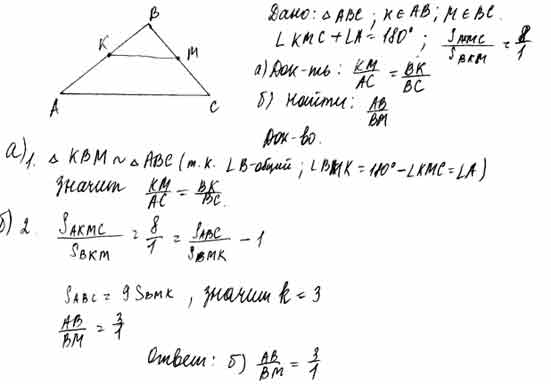 B
K
M
A
C
Дано: △ ABC ; K ∈ AB ; M ∈ BC.
∠ KMC + ∠A = 180° ; S_AKMC / S_BKM = 8/1
а) Док-ть : KM/AC = BK/BC
б) Найти : AB/BM
Док-во.
а) 1. △ KBM ~ △ ABC (т.к. ∠B-общий ; ∠BMK = 180° - ∠KMC = ∠A)
значит KM/AC = BK/BC.
б) 2. S_AKMC / S_BKM = 8/1 = S_ABC / S_BMK - 1
S_ABC = 9 S_BMK , значит k = 3
AB/BM = 3/1
Ответ: б) AB/BM = 3/1